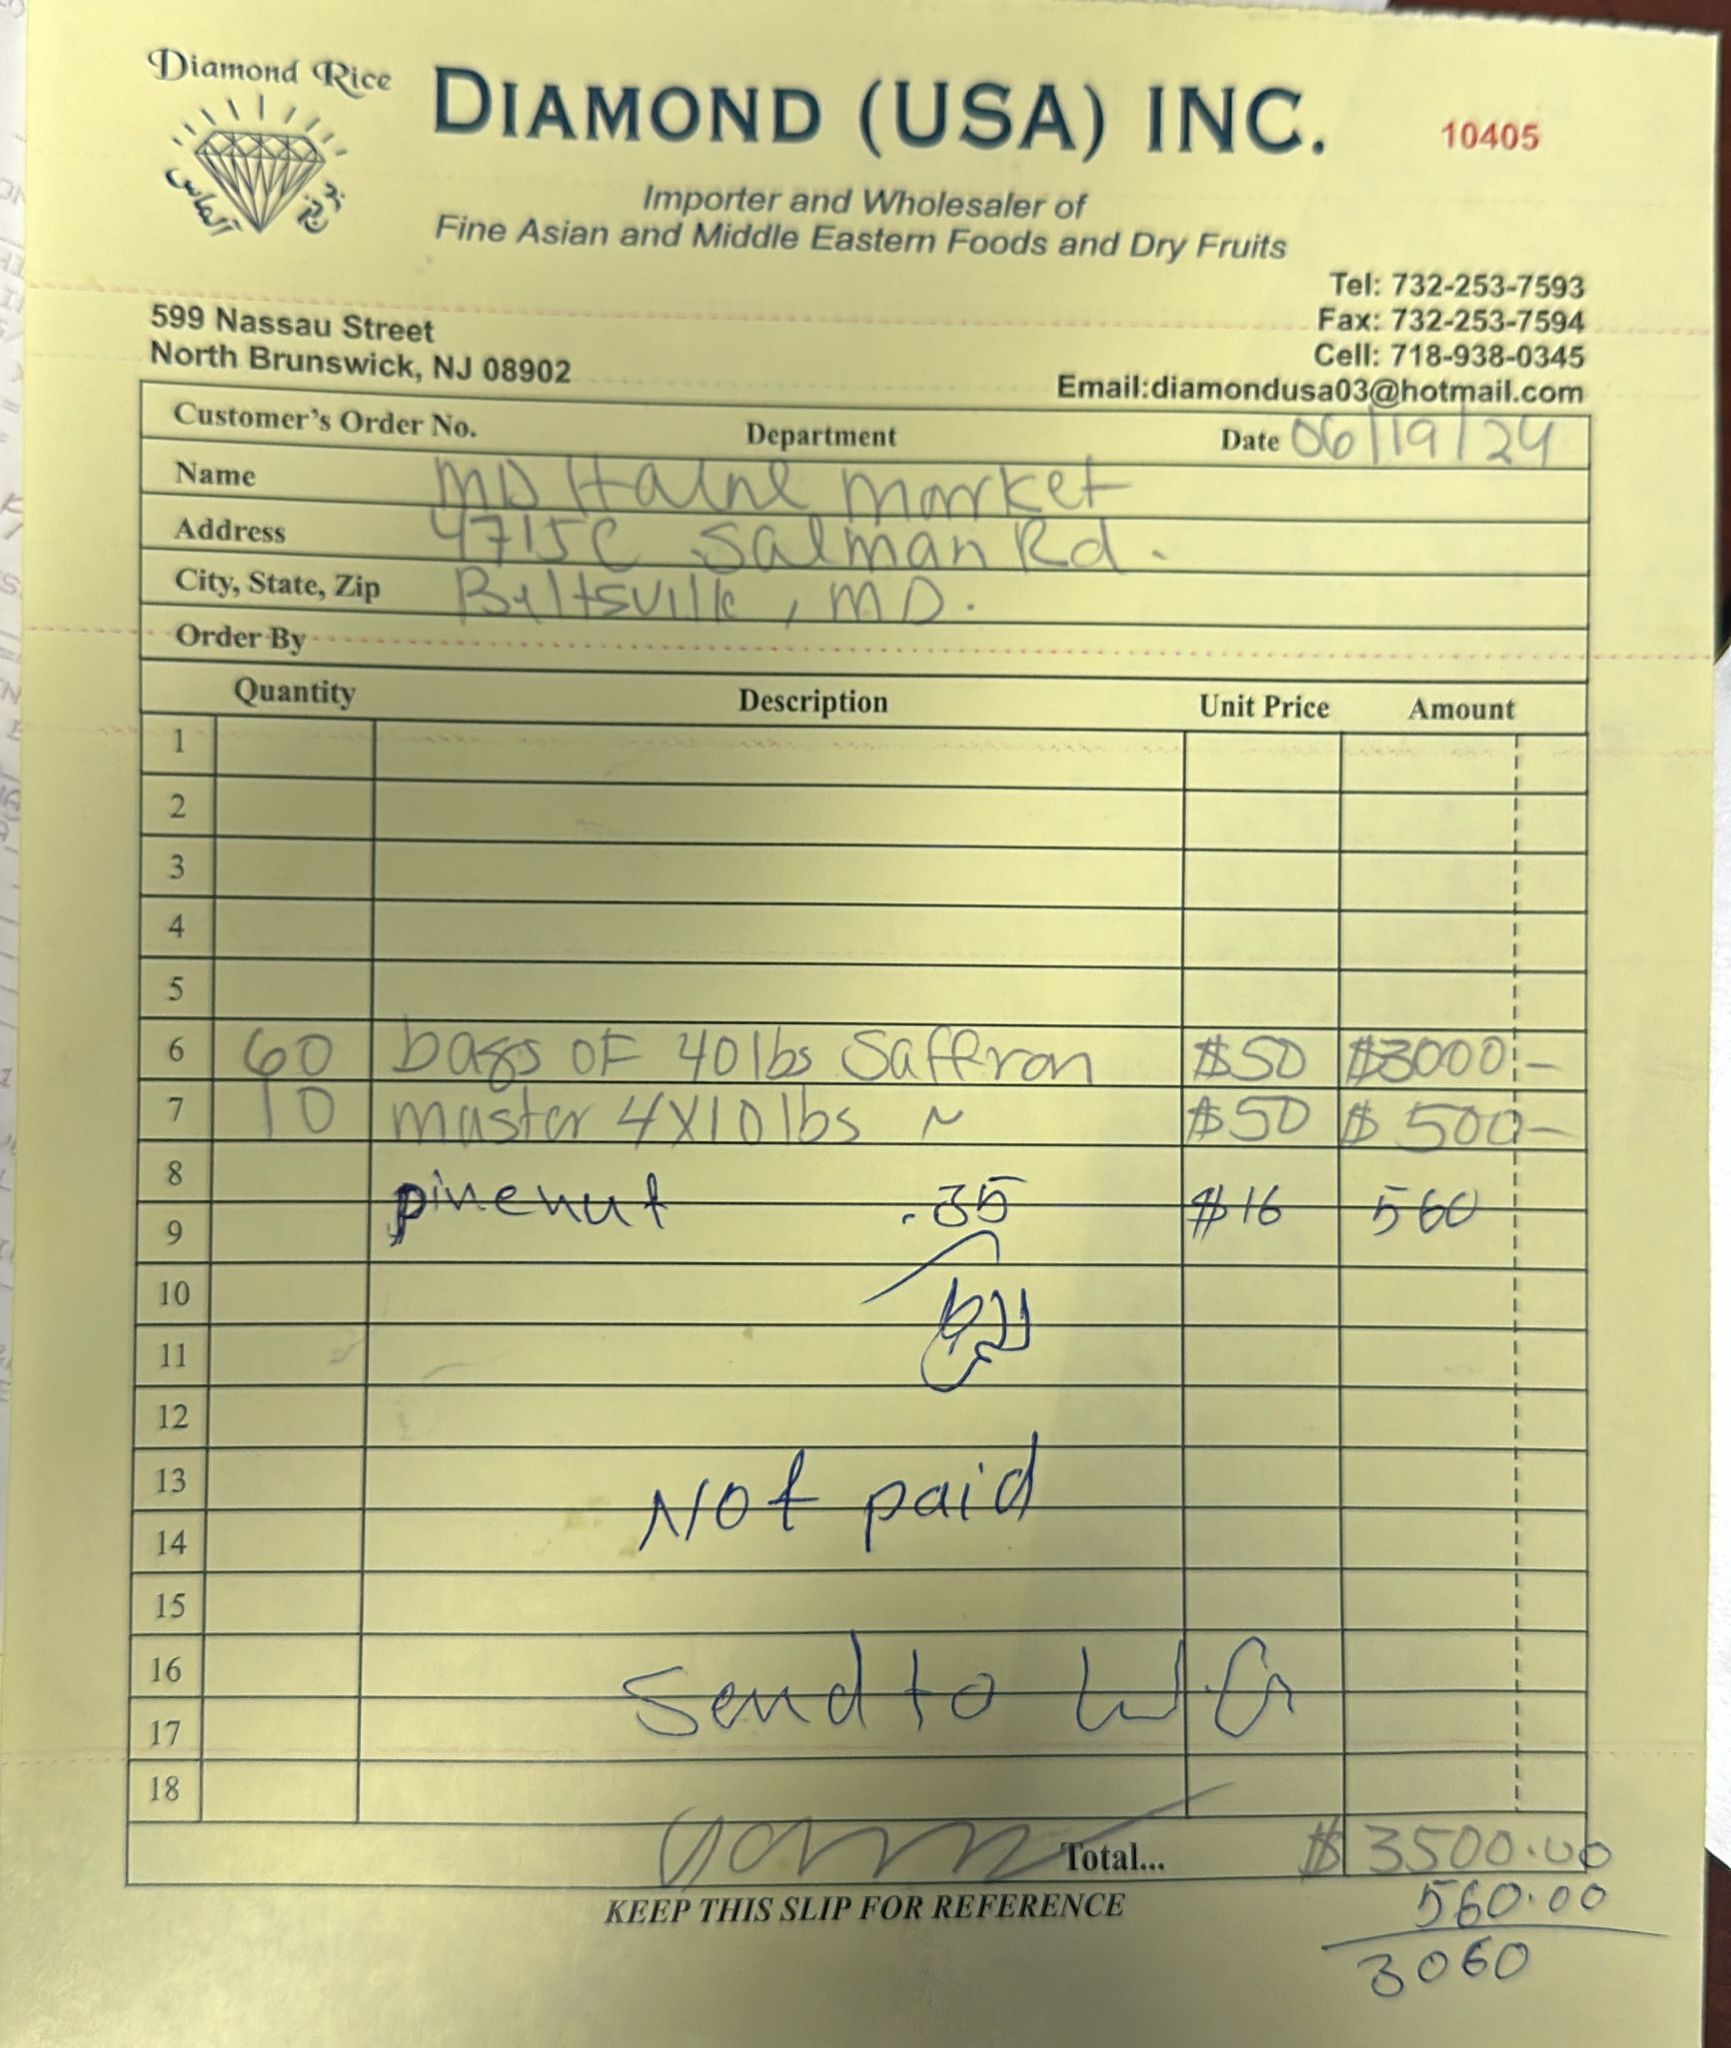 Diamond Rice
DIAMOND (USA) INC.
10405
الماس
برنج
Importer and Wholesaler of
Fine Asian and Middle Eastern Foods and Dry Fruits
599 Nassau Street
North Brunswick, NJ 08902
Tel: 732-253-7593
Fax: 732-253-7594
Cell: 718-938-0345
Email:diamondusa03@hotmail.com
Customer's Order No. Department Date 06/19/24
Name MD Halal Market
Address 4715C Salman Rd.
City, State, Zip Beltsville, MD.
Order By
Quantity Description Unit Price Amount
1
2
3
4
5
6 60 bags OF 40lbs Saffron $50 $3000 -
7 10 master 4X10lbs ~ $50 $500 -
8
pinenut .35 $16 560
9
10
11
12
13
Not paid
14
15
16
Send to W.G
17
18
Total... $3500.00
KEEP THIS SLIP FOR REFERENCE
560.00
3060